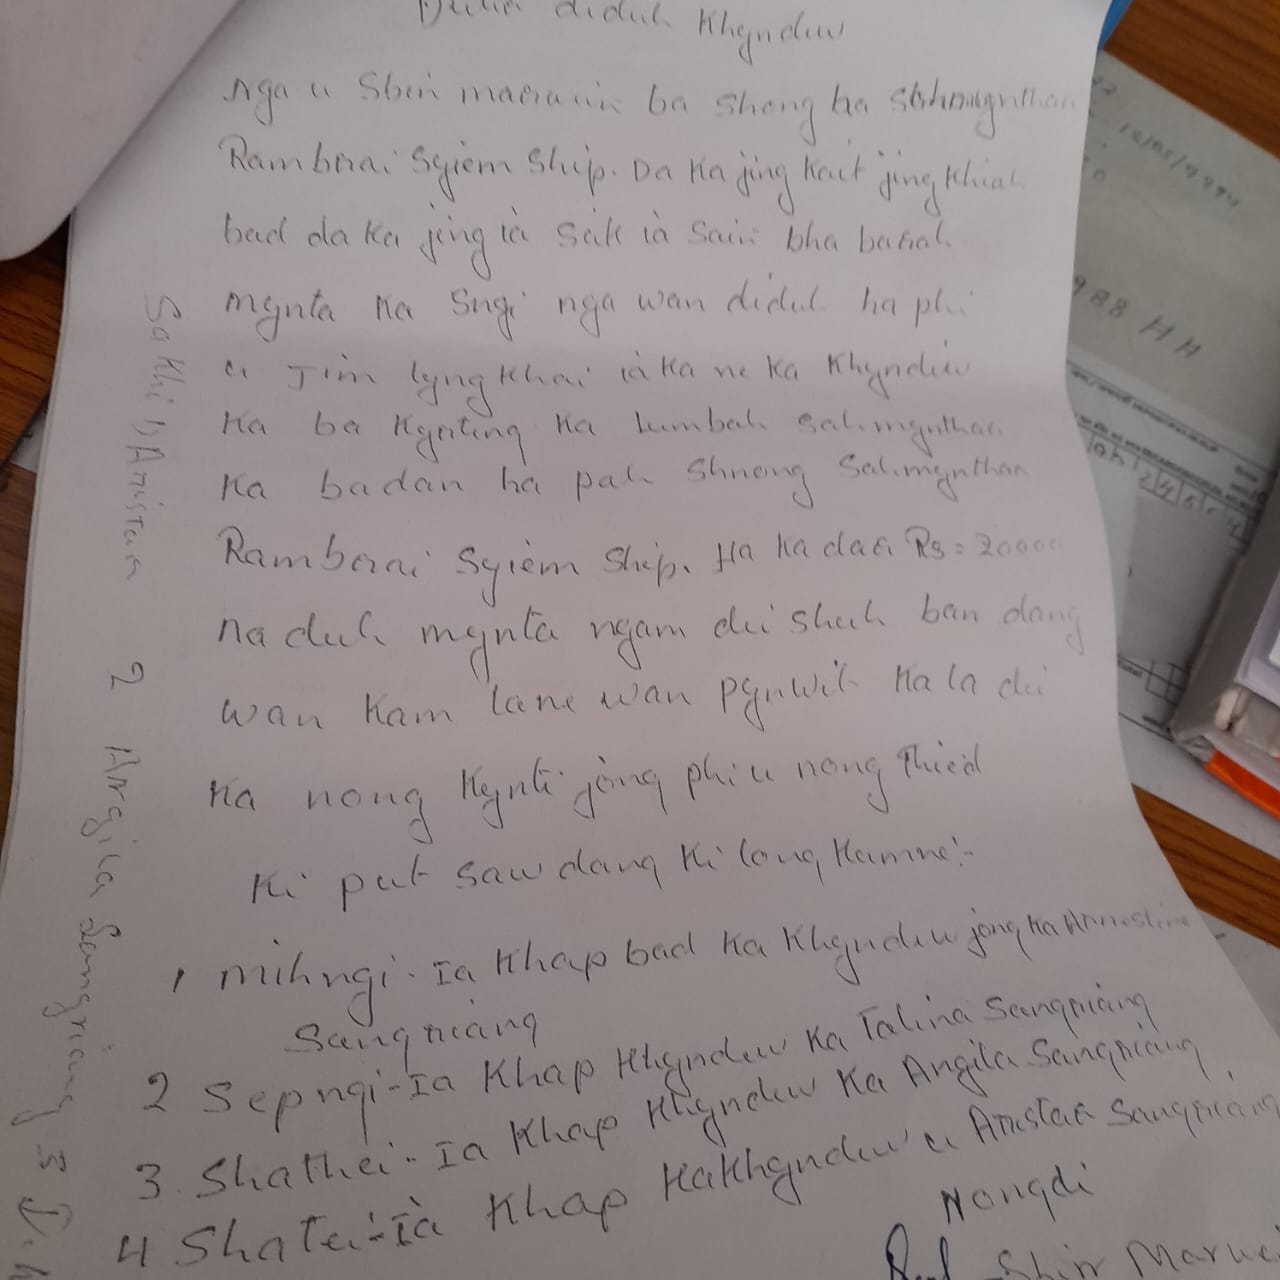 diduh Khyndew
nga u Sbin ba shong ha
Rambrai Syiem Ship. Da Ka jing Kut jing Khiah
bad da Ka jing ia Sak ia Sain bha bahah
mynta Ka Sngi nga wan diduh ha phi
u Jim lyngkhai ia Ka ne Ka Khyndew
Ka ba Kyrteng Ka Lumbah Sahmynthan
Ka badon ha pah Shnong Sahmynthan
Rambrai Syiem Ship. Ha Ka dar Rs = 20000
naduh mynta ngam dei shuh ban dang
wan Kam lane wan pynwih Ka la dei
Ka nong Kynti jong phi u nong Thied
Ki put saw dang Ki long Kumne:-
1 mihngi - Ia Khap bad Ka Khyndew jong Ka
Sangriang
2 Sepngi - Ia Khap Khyndew Ka Talina Sangriang
3. Shathei - Ia Khap Khyndew Ka Angila Sangriang
4 Shatei - Ia Khap Ka Khyndew u Aristar Sangriang
Nongdi
Sbin
Sakhi 1) Aristar 2 Angila Sangriang 3
12/05/1994
988 HH